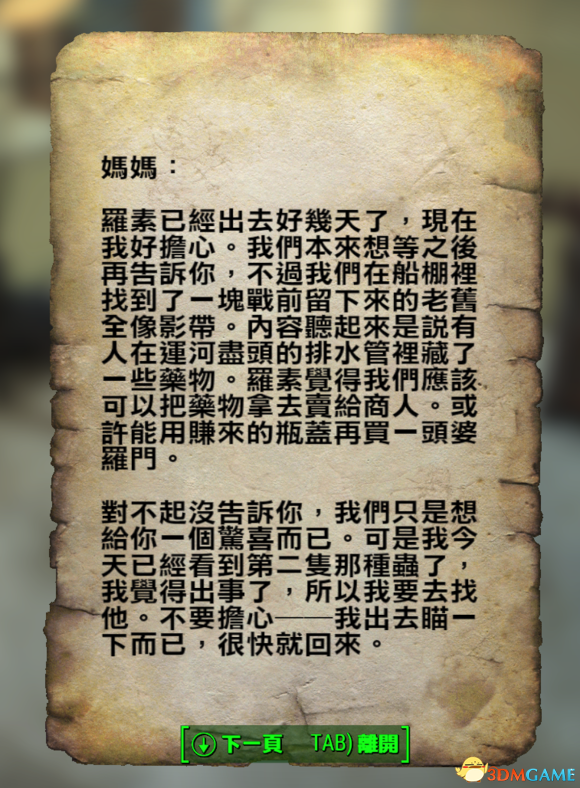 媽媽：
羅素已經出去好幾天了，現在
我好擔心。我們本來想等之後
再告訴你，不過我們在船棚裡
找到了一塊戰前留下來的老舊
全像影帶。內容聽起來是說有
人在運河盡頭的排水管裡藏了
一些藥物。羅素覺得我們應該
可以把藥物拿去賣給商人。或
許能用賺來的瓶蓋再買一頭婆
羅門。
對不起沒告訴你，我們只是想
給你一個驚喜而已。可是我今
天已經看到第二隻那種蟲了，
我覺得出事了，所以我要去找
他。不要擔心——我出去瞄一
下而已，很快就回來。
下一頁 TAB)離開
3DMGAME